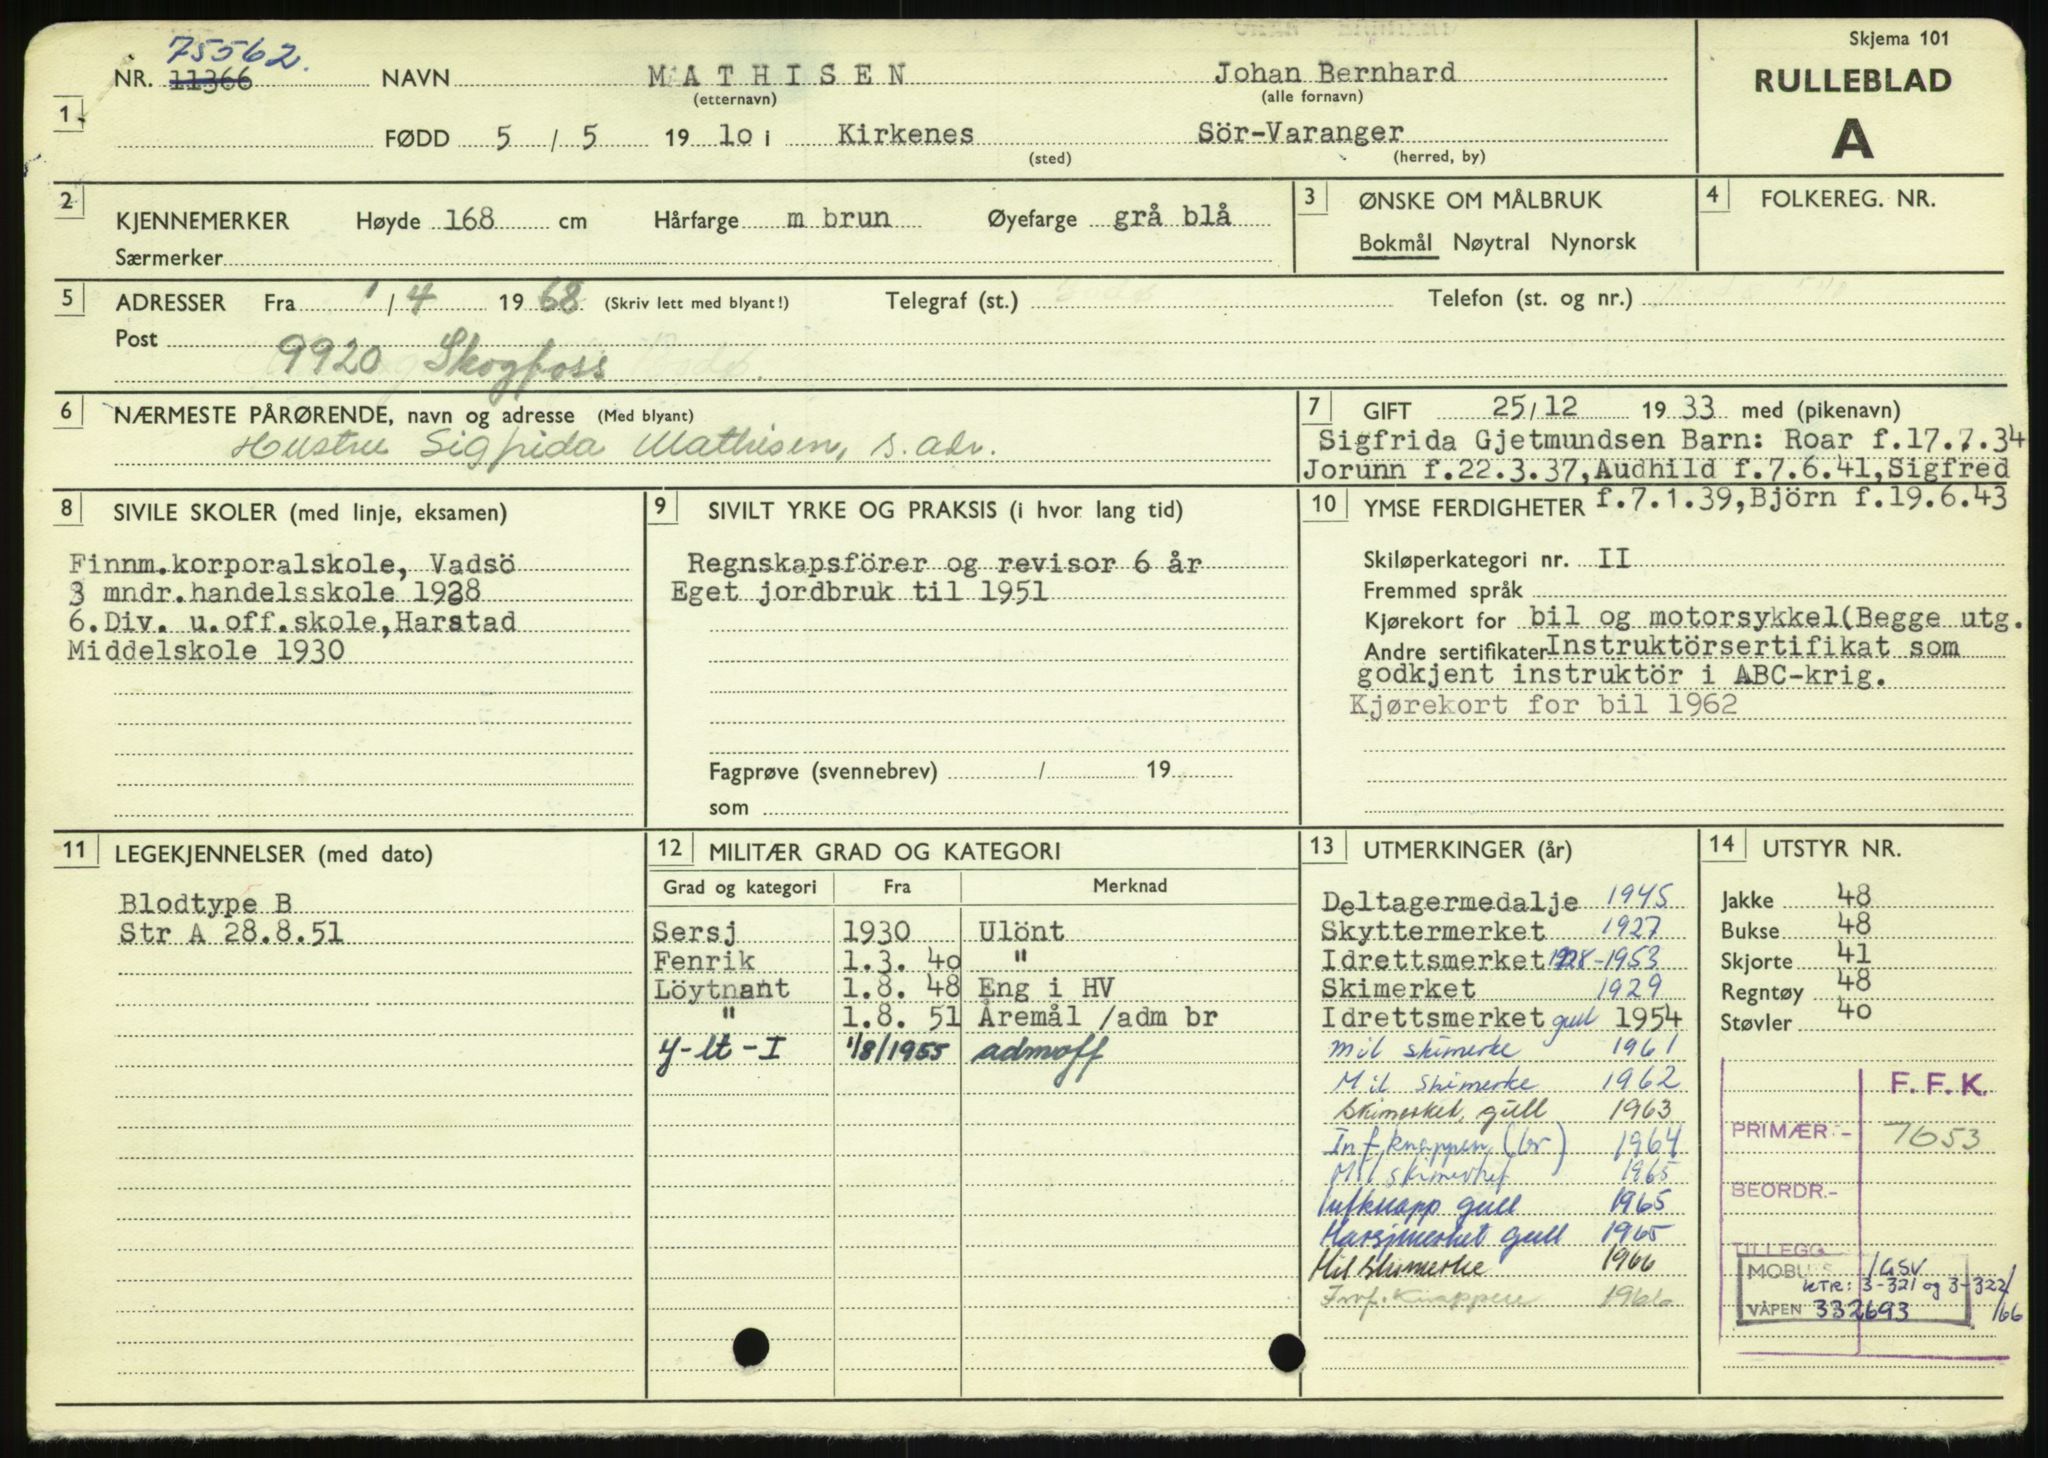 Skjema 101
RULLEBLAD
A
75562.
NR. 11366 NAVN MATHISEN Johan Bernhard
(etternavn) (alle fornavn)
1
FØDD 5 / 5 1910 i Kirkenes Sör-Varanger
(sted) (herred, by)
2
KJENNEMERKER Høyde 168 cm Hårfarge m brun Øyefarge grå blå
Særmerker
3 ØNSKE OM MÅLBRUK
Bokmål Nøytral Nynorsk
4 FOLKEREG. NR.
5 ADRESSER Fra 1/4 1968 (Skriv lett med blyant!) Telegraf (st.) Telefon (st. og nr.)
Post
9920 Skogfoss
6 NÆRMESTE PÅRØRENDE, navn og adresse (Med blyant)
Hustru Sigfrida Mathisen, s. adr.
7 GIFT 25/12 1933 med (pikenavn)
Sigfrida Gjetmundsen Barn: Roar f.17.7.34
Jorunn f.22.3.37,Audhild f.7.6.41,Sigfred
f.7.1.39,Björn f.19.6.43
8 SIVILE SKOLER (med linje, eksamen)
Finnm.korporalskole, Vadsö
3 mndr.handelsskole 1928
6.Div. u.off.skole,Harstad
Middelskole 1930
9 SIVILT YRKE OG PRAKSIS (i hvor lang tid)
Regnskapsförer og revisor 6 år
Eget jordbruk til 1951
Fagprøve (svennebrev) / 19
som
10 YMSE FERDIGHETER
Skiløperkategori nr. II
Fremmed språk
Kjørekort for bil og motorsykkel(Begge utg.
Andre sertifikater Instruktörsertifikat som
godkjent instruktör i ABC-krig.
Kjørekort for bil 1962
11 LEGEKJENNELSER (med dato)
Blodtype B
Str A 28.8.51
12 MILITÆR GRAD OG KATEGORI
Grad og kategori Fra Merknad
Sersj 1930 Ulönt
Fenrik 1.3. 40 "
Löytnant 1.8. 48 Eng i HV
" 1.8. 51 Åremål /adm br
Y-lt-I 1/8/1955 admoff
13 UTMERKINGER (år)
Deltagermedalje 1945
Skyttermerket 1927
Idrettsmerket 1928-1953
Skimerket 1929
Idrettsmerket gull 1954
Mil skimerke 1961
Mil skimerke 1962
Skimerket, gull 1963
Inf.knappen (br) 1964
Mil skimerket 1965
Infknapp gull 1965
Marsjmerket gull 1965
Mil skimerke 1966
Inf. Knappen 1966
14 UTSTYR NR.
Jakke 48
Bukse 48
Skjorte 41
Regntøy 48
Støvler 40
F. F. K.
PRIMÆR:- 7653
BEORDR.-
TILLEGG
MOBU /GSV
KTR: 3-321 og 3-322/
VÅPEN 332693 /66